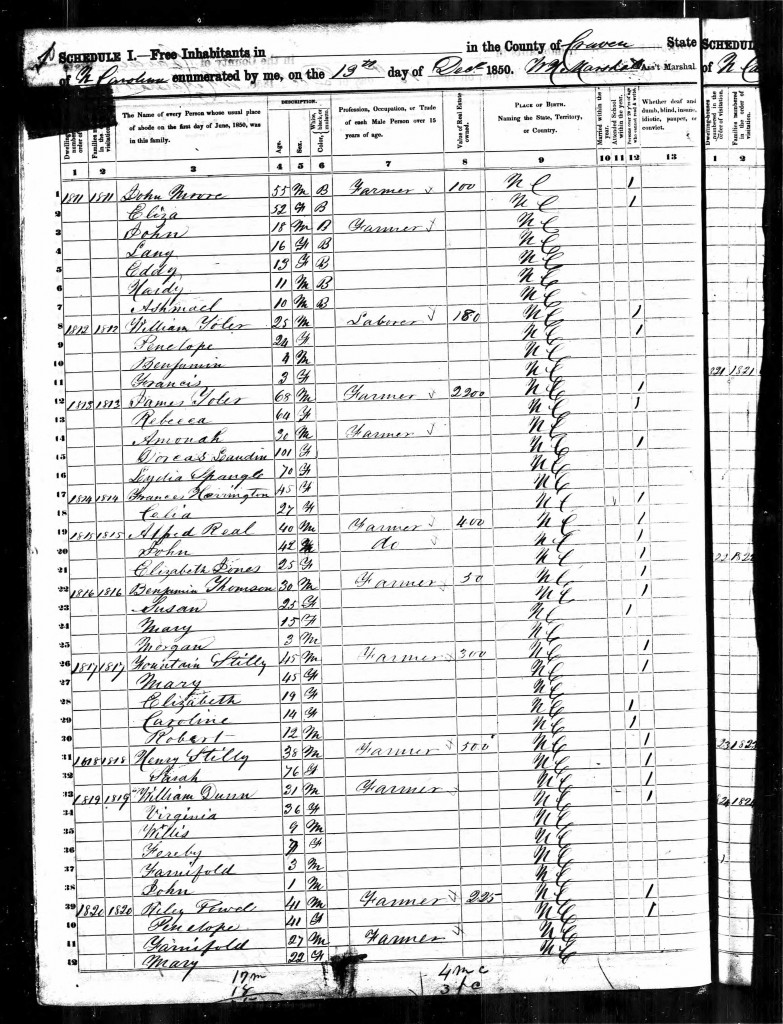 SCHEDULE I.—Free Inhabitants in in the County of Craven State
of N Carolina enumerated by me, on the 13th day of Decr 1850. Ass't Marshal
Dwelling-houses numbered in the order of visitation.
Families numbered in the order of visitation.
The Name of every Person whose usual place of abode on the first day of June, 1850, was in this family.
DESCRIPTION.
Age.
Sex.
Color, White, black, or mulatto.
Profession, Occupation, or Trade of each Male Person over 15 years of age.
Value of Real Estate owned.
PLACE OF BIRTH. Naming the State, Territory, or Country.
Married within the year.
Attended School within the year.
Persons over 20 y'rs of age who cannot read & write.
Whether deaf and dumb, blind, insane, idiotic, pauper, or convict.
1 2 3 4 5 6 7 8 9 10 11 12 13
1 1811 1811 John Moore 55 M B Farmer 100 N C 1
2 Eliza 52 F B N C 1
3 John 18 M B Farmer N C
4 Lany 16 F B N C
5 Eddy 13 F B N C
6 Hardy 11 M B N C
7 Ashmael 10 M B N C
8 1812 1812 William Toler 25 M Laborer 180 N C 1
9 Penelope 24 F N C 1
10 Benjamin 4 M N C
11 Francis 3 F N C
12 1813 1813 James Toler 68 M Farmer 2200 N C 1
13 Rebecca 64 F N C 1
14 Amonah 20 M Farmer N C
15 Dorcas 101 F N C 1
16 Lydia Spangle 70 F N C
17 1814 1814 Frances Herrington 45 F N C
18 Celia 27 F N C 1
19 1815 1815 Alfred Real 40 M Farmer 400 N C 1
20 John 42 M do N C 1
21 Elizabeth Jones 25 F N C 1
22 1816 1816 Benjamin Thomson 30 M Farmer 50 N C 1
23 Susan 25 F N C 1
24 Mary 15 F N C 1
25 Morgan 3 M N C
26 1817 1817 Fountain Stilly 45 M Farmer 300 N C 1
27 Mary 45 F N C 1
28 Elizabeth 19 F N C
29 Caroline 14 F N C 1
30 Robert 12 M N C 1
31 1818 1818 Henry Stilly 38 M Farmer 500 N C 1
32 Sarah 76 F N C 1
33 1819 1819 William Dunn 31 M Farmer N C 1
34 Virginia 36 F N C 1
35 Willis 9 M N C
36 Fereby 7 F N C
37 Farnifold 3 M N C
38 John 1 M N C
39 1820 1820 Riley Powel 41 M Farmer 225 N C 1
40 Penelope 41 F N C 1
41 Farnifold 27 M Farmer N C
42 Mary 22 F N C
17 m
18
4 m c
3 f c
SCHEDULE
of N Ca
1 2
821 1821
22 1822
23 1823
824 1824